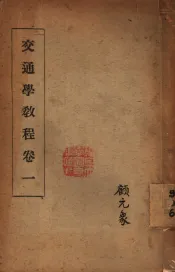 交通學教程卷一
顧元象